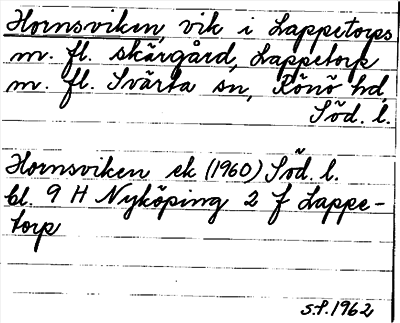 Hornsviken, vik i Lappetorps
m. fl. skärgård, Lappetorp
m. fl. Svärta sn, Rönö hd,
Söd. l.
Hornsviken ek (1960) Söd. l.
bl. 9 H Nyköping 2 f Lappe-
torp
S.P. 1962